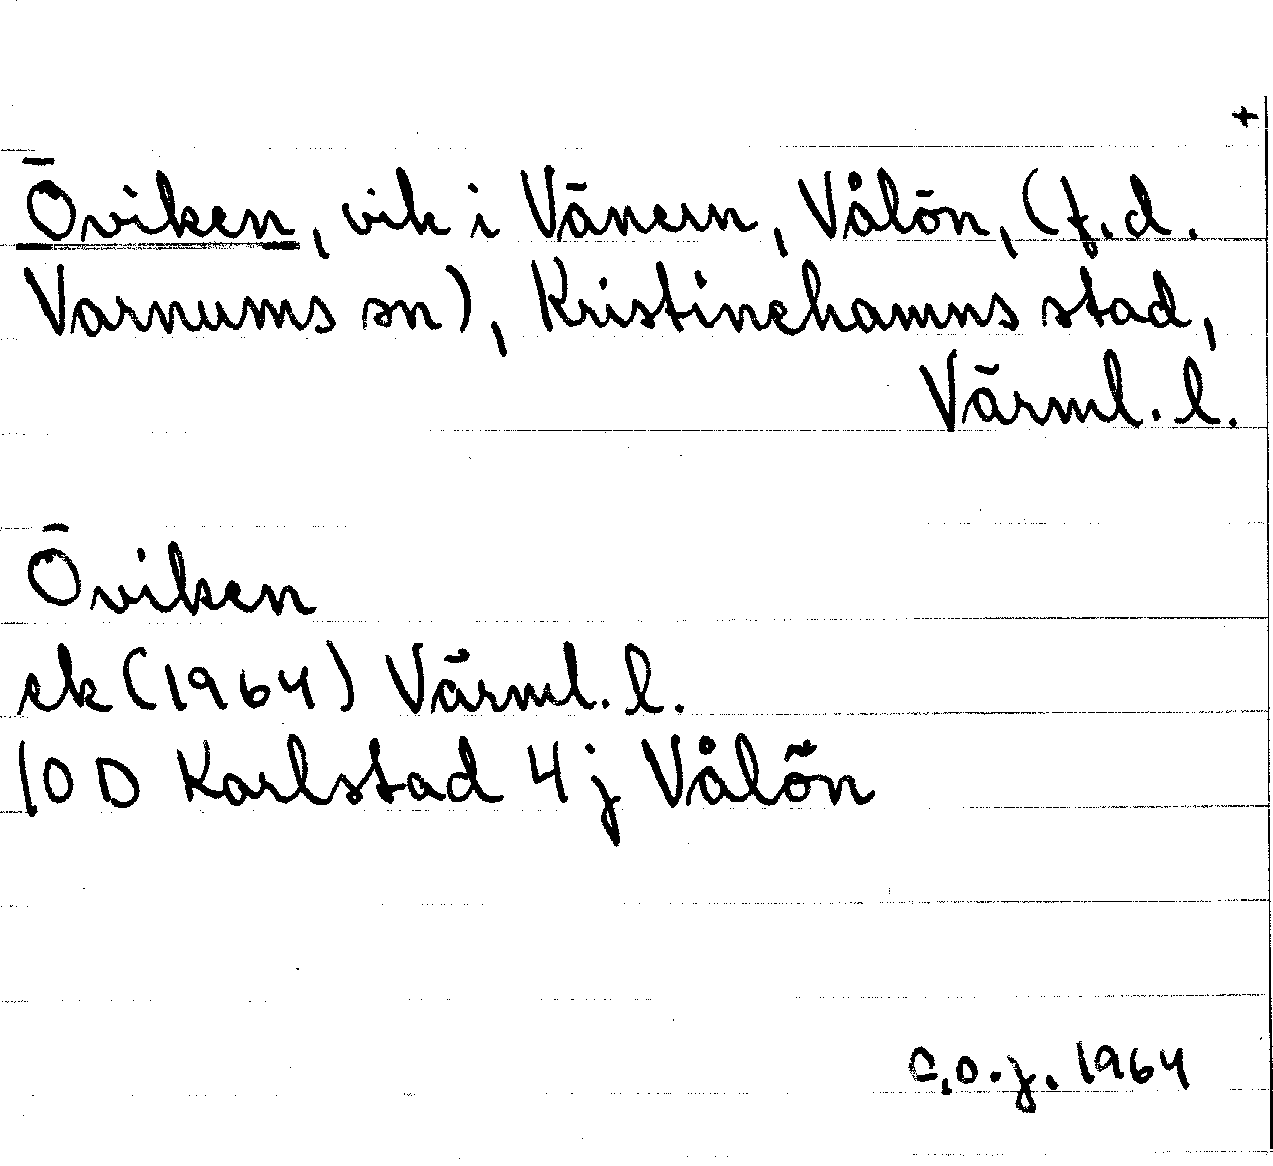 +
Öviken, vik i Vänern, Vålön, (f.d.
Varnums sn), Kristinehamns stad,
Värml. l.
Öviken
ek (1964) Värml. l.
10 D Karlstad 4j Vålön
C.O.J. 1964